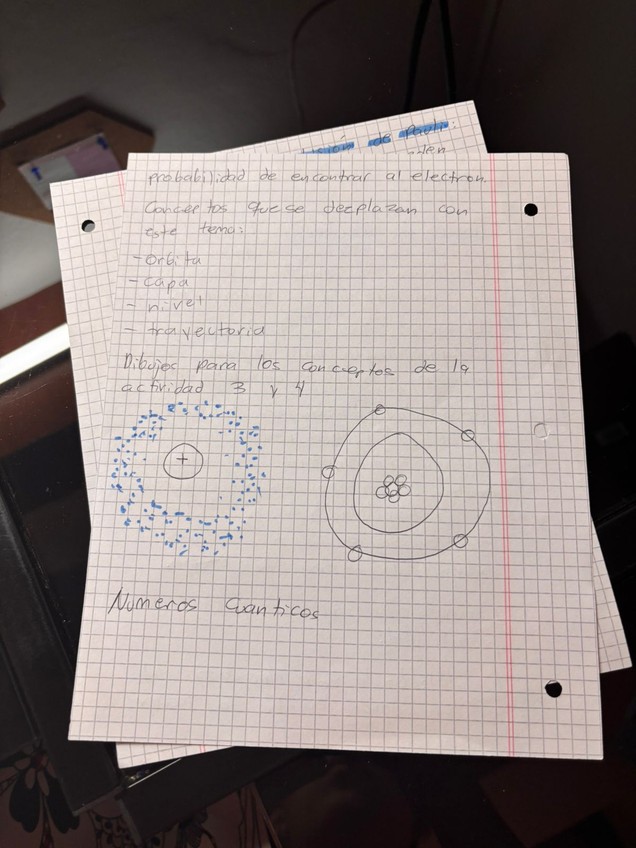 ción de Pauli:
den
probabilidad de encontrar al electron.
Conceptos que se desplazan con
este tema:
- Orbita
- Capa
- nivel
- trayectoria
Dibujos para los conceptos de la
actividad 3 y 4
+
Numeros Cuanticos